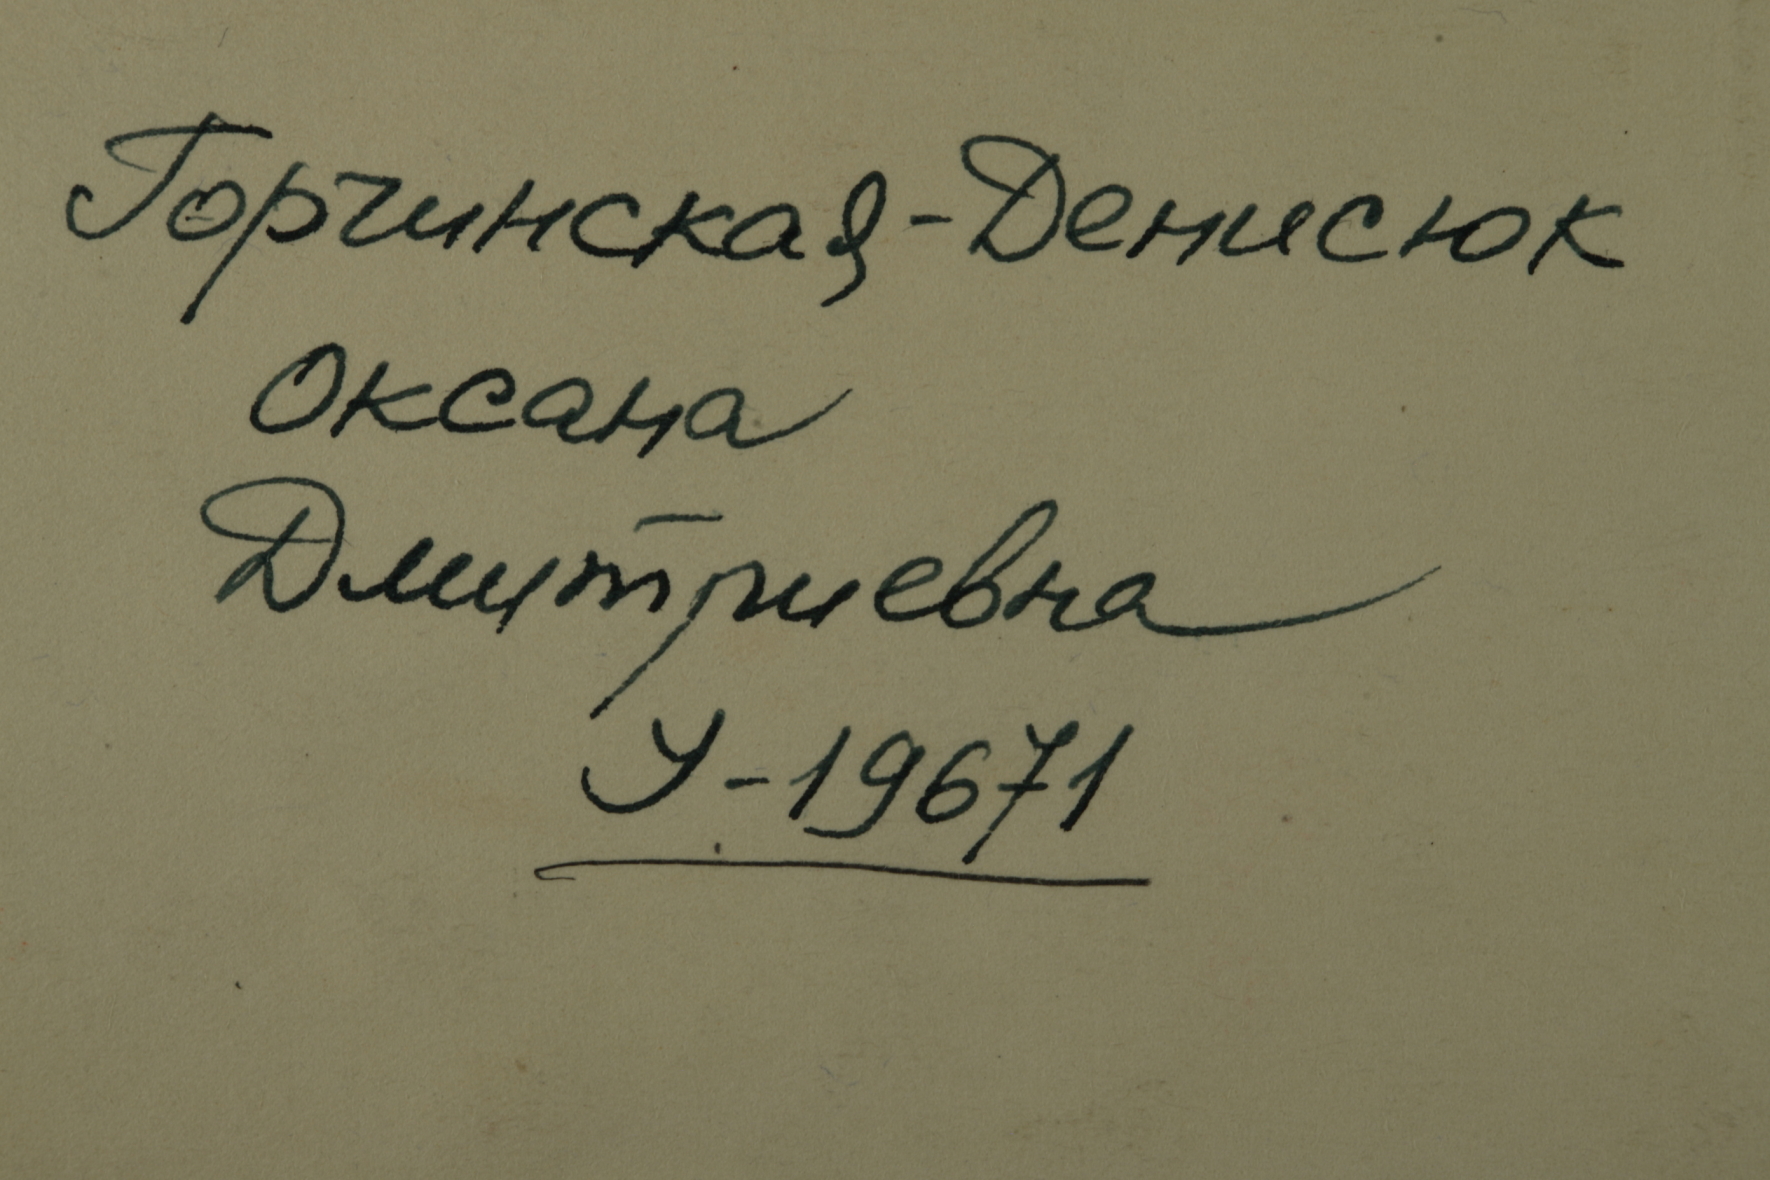 Горчинская-Денисюк
Оксана
Дмитриевна
У-19671